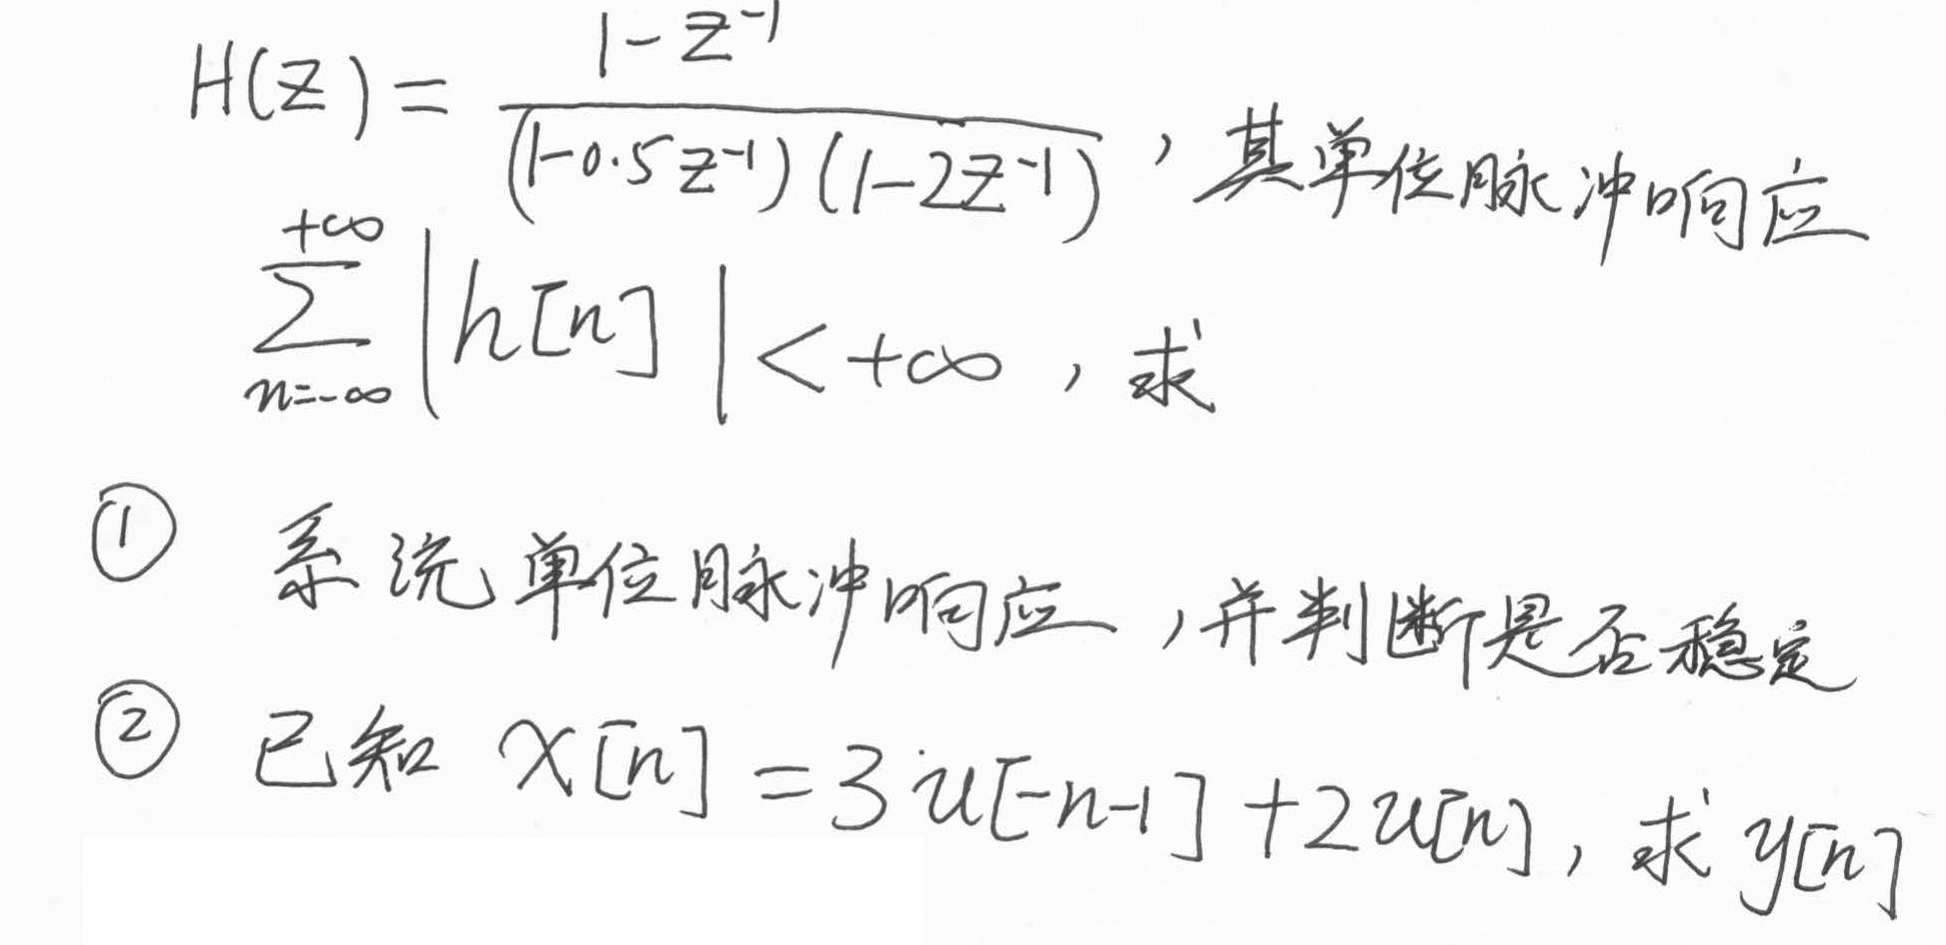 H(z) = \frac{1-z^{-1}}{(1-0.5z^{-1})(1-2z^{-1})}, 其单位脉冲响应
\sum_{n=-\infty}^{+\infty} |h[n]| < +\infty, 求
① 系统单位脉冲响应, 并判断是否稳定
② 已知 x[n] = 3u[-n-1] + 2u[n], 求 y[n]